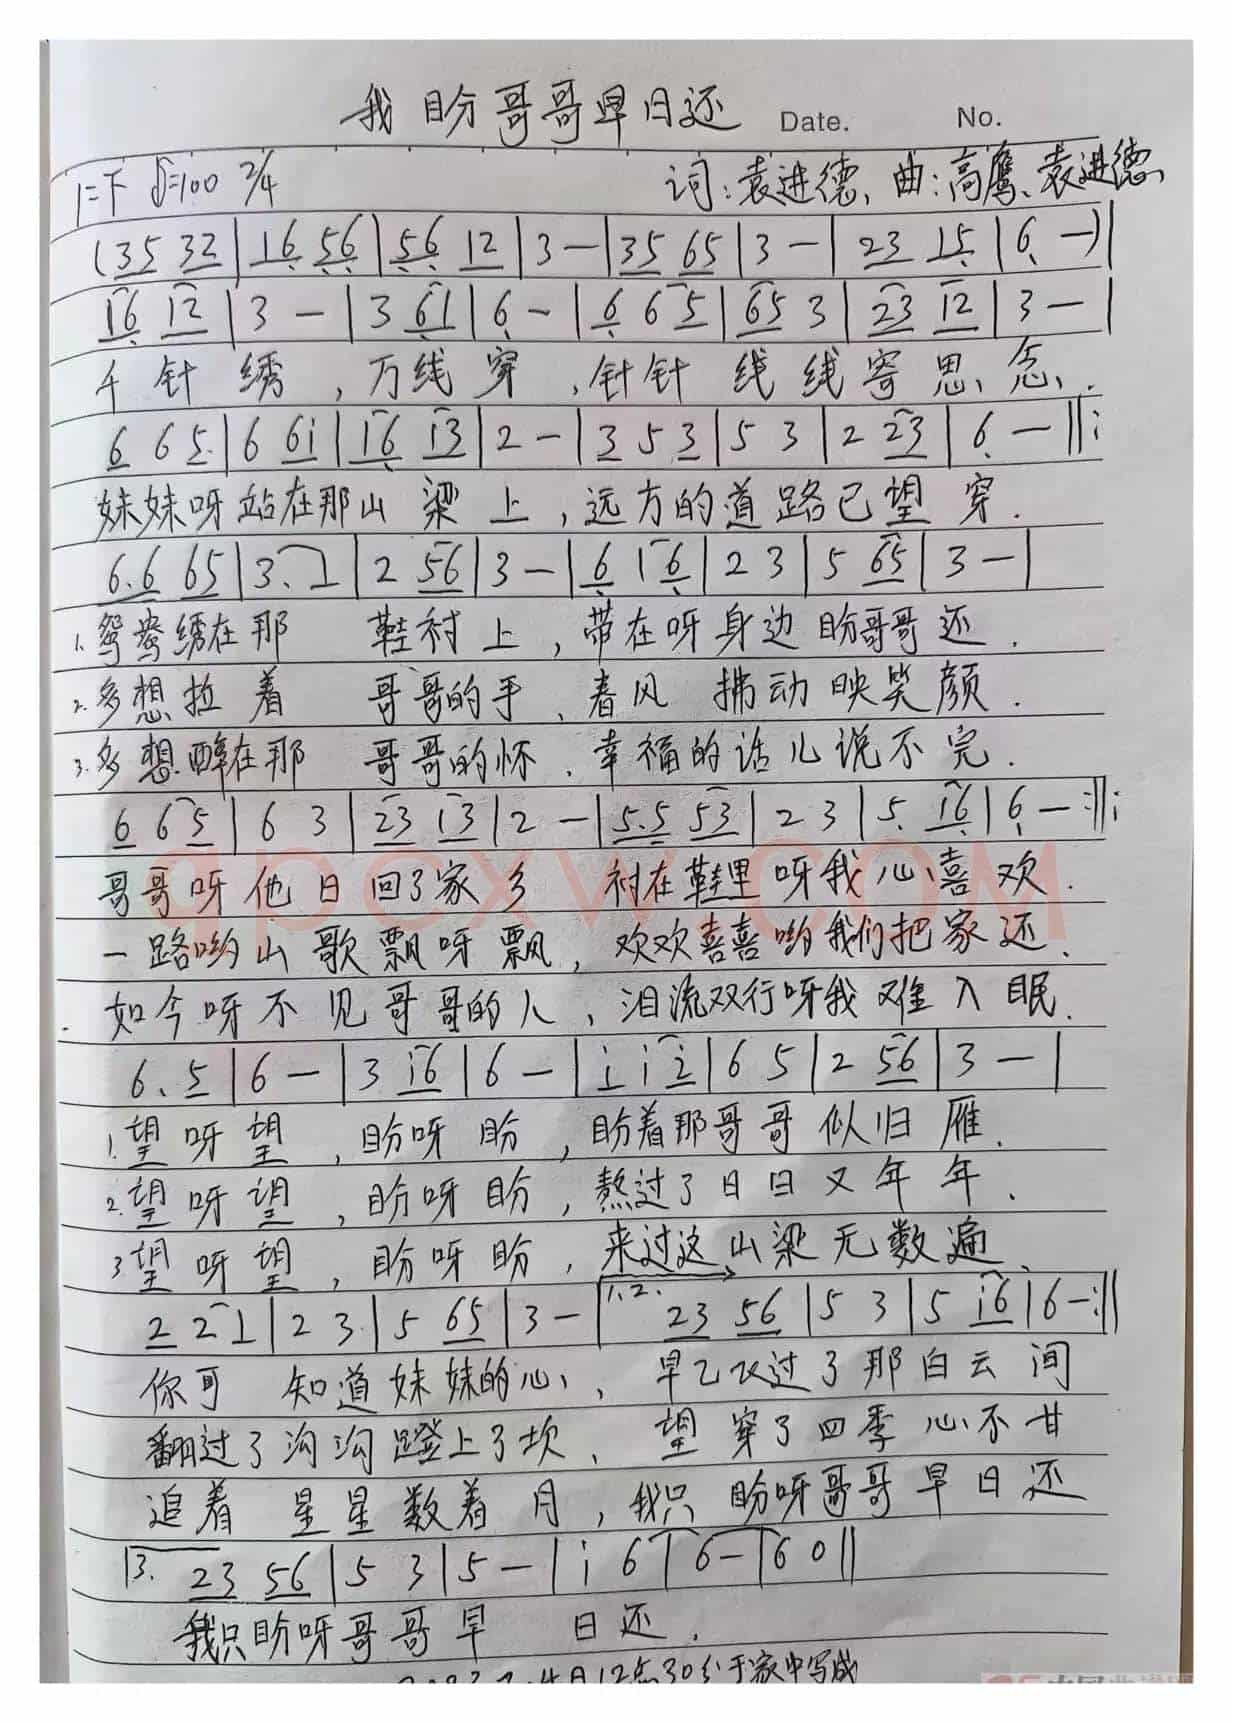 我盼哥哥早日还 Date. No.
1=F ♩=100 2/4 词:袁进德、曲:高鹰、袁进德
(35 32|16 56|56 12|3—|35 65|3—|23 15|6—)|
16 12|3—|3 61|6—|6 6 5|65 3|23 12|3—|
千针绣,万线穿,针针线线寄思念.
6 6 5|6 6i|i6 i3|2—|3 5 3|5 3|2 23|6—‖:
妹妹呀站在那山梁上,远方的道路已望穿.
6.6 65|3. 1|2 56|3—|6 1 6|2 3|5 65|3—|
1.鸳鸯绣在那鞋衬上,带在呀身边盼哥哥还.
2.多想拉着哥哥的手,春风拂动映笑颜.
3.多想醉在那哥哥的怀、幸福的话儿说不完.
6 6 5|6 3|23 13|2—|5.5 53|2 3|5. 16|6—:‖:
哥哥呀他日回了家乡 衬在鞋里呀我心喜欢.
一路哟山歌飘呀飘,欢欢喜喜哟我们把家还.
如今呀不见哥哥的人,泪流双行呀我难入眠.
6. 5|6—|3 i6|6—|i i 2|6 5|2 56|3—|
1.望呀望,盼呀盼,盼着那哥哥似归雁.
2.望呀望,盼呀盼,熬过了日日又年年.
3望呀望,盼呀盼,来过这山梁无数遍
2 2 1|2 3|5 65|3—|1.2. 23 56|5 3|5 i6|6—:‖
你可知道妹妹的心,早已飞过了那白云间
翻过了沟沟蹬上了坎、望穿了四季心不甘
追着星星数着月,我只盼呀哥哥早日还
3. 23 56|5 3|5—|i 6|6—|6 0‖
我只盼呀哥哥早日还.
qpcxw.com